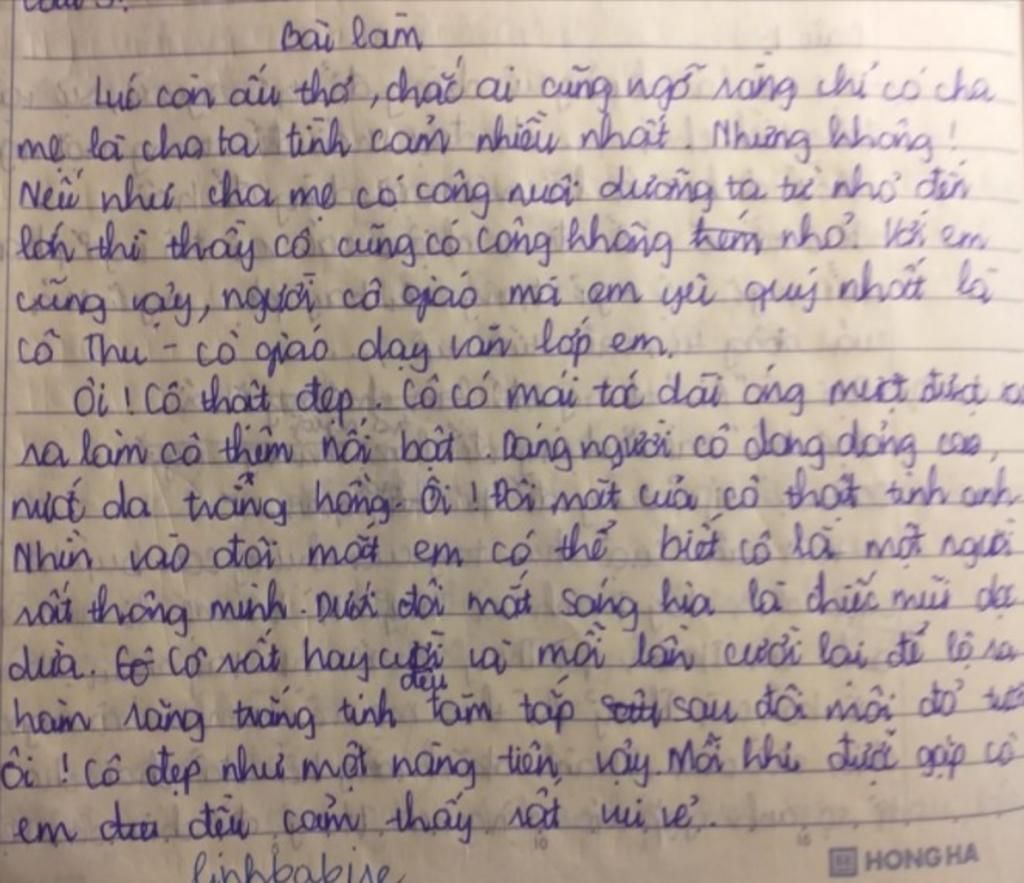 Bài làm
Lúc còn ấu thơ, chắc ai cũng ngỡ rằng chỉ có cha
mẹ là cho ta tình cảm nhiều nhất. Nhưng không!
Nếu như cha mẹ có công nuôi dưỡng ta từ nhỏ đến
lớn thì thầy cô cũng có công không nhỏ. Với em
cũng vậy, người cô giáo mà em yêu quý nhất là
cô Thu - cô giáo dạy văn lớp em.
Ôi! Cô thật đẹp. Cô có mái tóc dài óng mượt được
ra làm cô thêm nổi bật. Dáng người cô dong dỏng cao,
nước da trắng hồng. Ôi! Đôi mắt của cô thật tinh anh
Nhìn vào đôi mắt em có thể biết cô là một người
rất thông minh. Dưới đôi mắt sáng kia là chiếc mũi dọc
dừa. Cô rất hay cười và mỗi lần cười lại để lộ ra
hàm răng trắng tinh đều tăm tắp sau đôi môi đỏ
Ôi! Cô đẹp như một nàng tiên vậy. Mỗi khi được gặp cô
em đều cảm thấy rất vui vẻ.
linhbabise
HONG HA